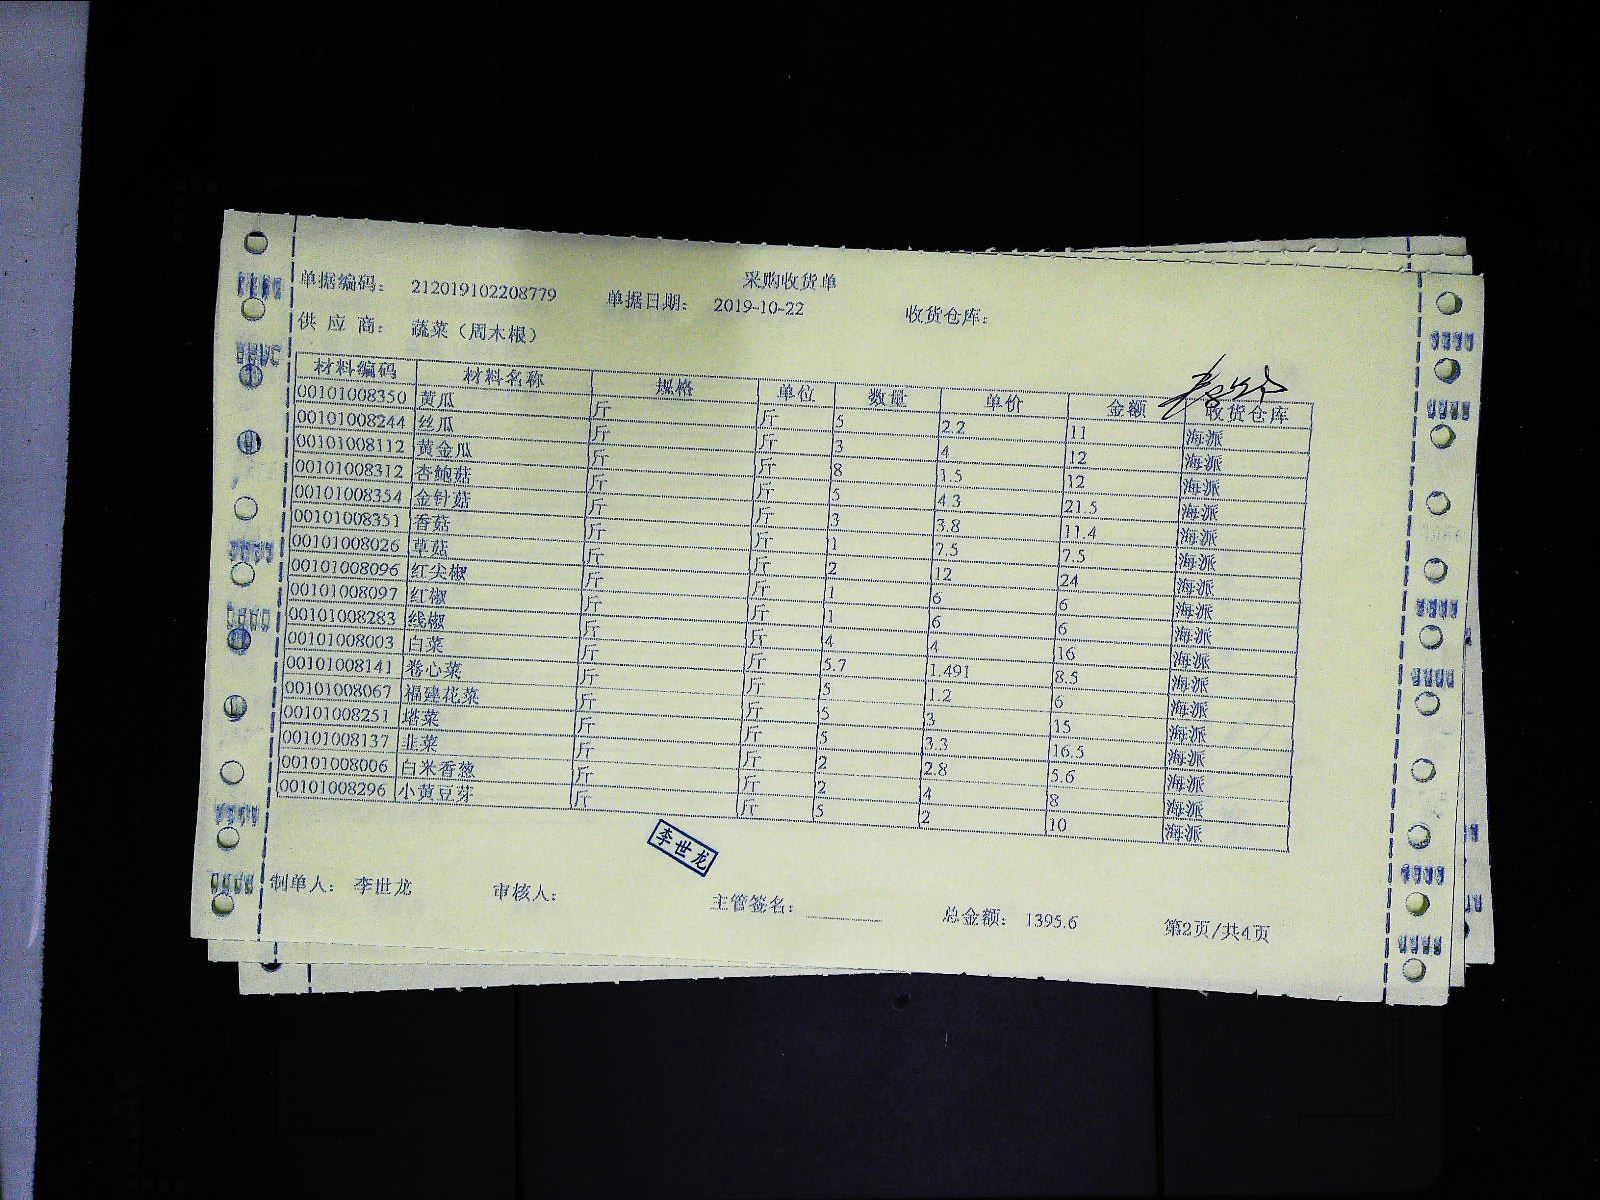 采购收货单
单据编码： 212019102208779 单据日期： 2019-10-22 收货仓库：
供 应 商： 蔬菜（周木根）
材料编码 材料名称 规格 单位 数量 单价 金额 收货仓库
00101008350 黄瓜 斤 斤 5 2.2 11 海派
00101008244 丝瓜 斤 斤 3 4 12 海派
00101008112 黄金瓜 斤 斤 8 1.5 12 海派
00101008312 杏鲍菇 斤 斤 5 4.3 21.5 海派
00101008354 金针菇 斤 斤 3 3.8 11.4 海派
00101008351 香菇 斤 斤 1 7.5 7.5 海派
00101008026 草菇 斤 斤 2 12 24 海派
00101008096 红尖椒 斤 斤 1 6 6 海派
00101008097 红椒 斤 斤 1 6 6 海派
00101008283 线椒 斤 斤 4 4 16 海派
00101008003 白菜 斤 斤 5.7 1.491 8.5 海派
00101008141 卷心菜 斤 斤 5 1.2 6 海派
00101008067 福建花菜 斤 斤 5 3 15 海派
00101008251 塔菜 斤 斤 5 3.3 16.5 海派
00101008137 韭菜 斤 斤 2 2.8 5.6 海派
00101008006 白米香葱 斤 斤 2 4 8 海派
00101008296 小黄豆芽 斤 斤 5 2 10 海派
李世龙
制单人： 李世龙 审核人： 主管签名： 总金额： 1395.6 第2页/共4页